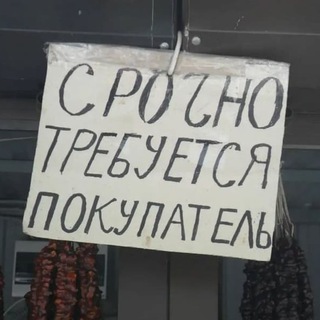 СРОЧНО
ТРЕБУЕТСЯ
ПОКУПАТЕЛЬ